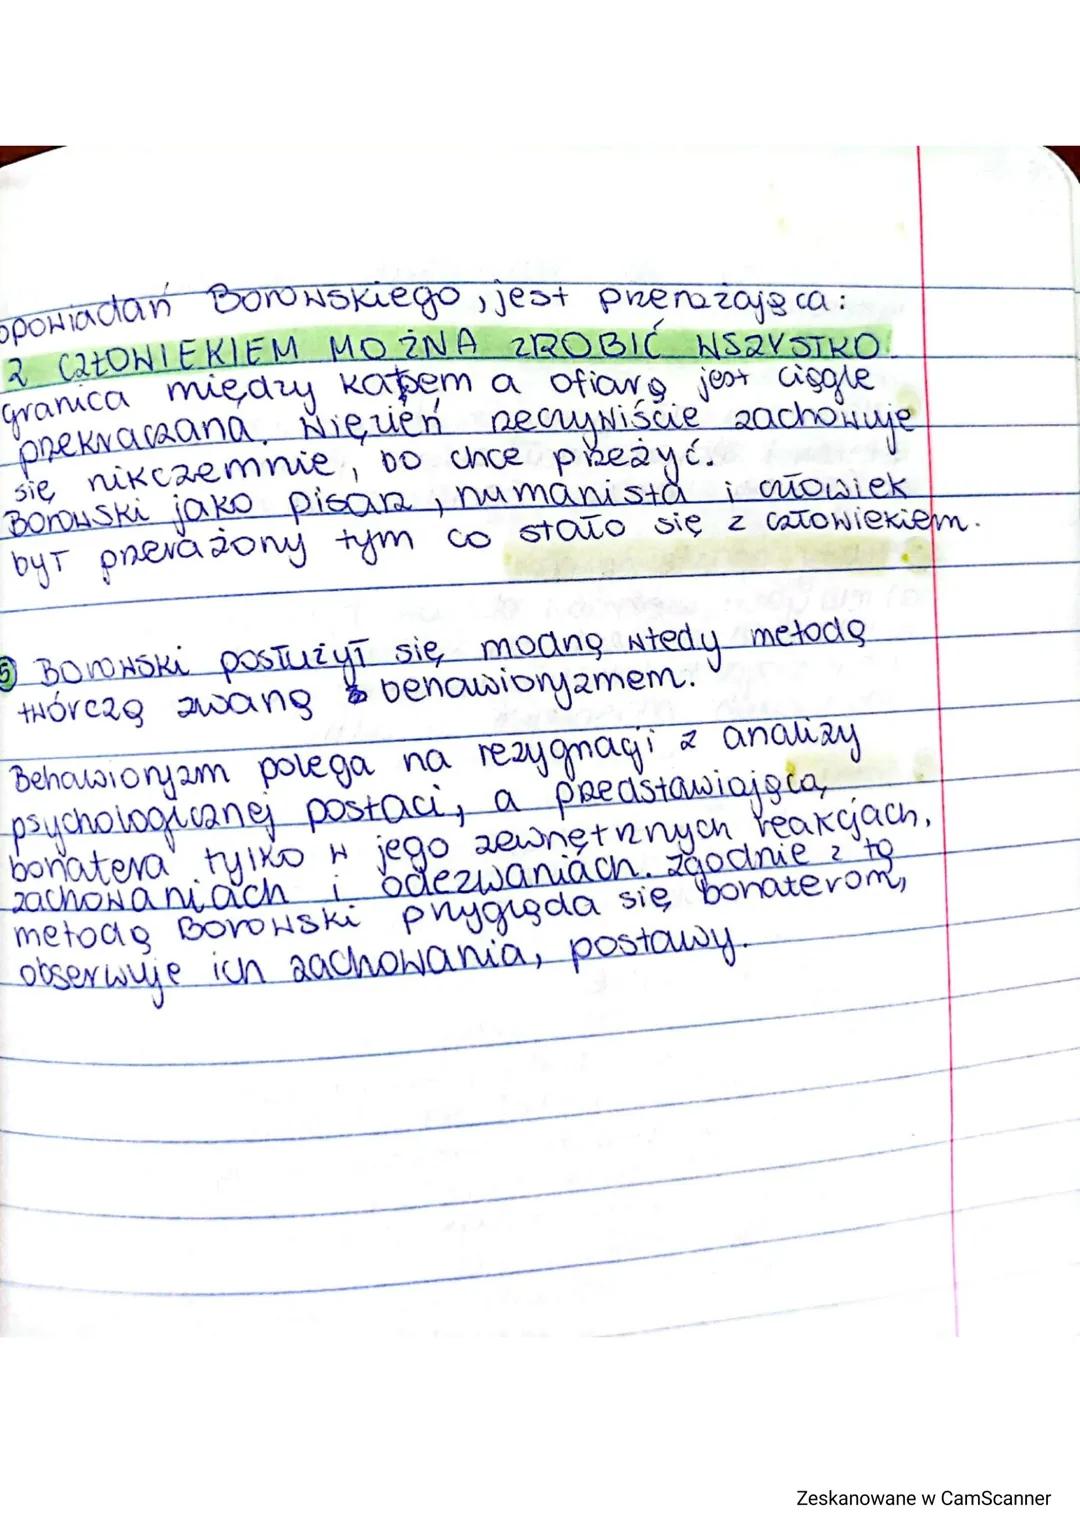 opowiadań Borowskiego, jest przerażająca:
Z CZŁOWIEKIEM MOŻNA ZROBIĆ WSZYSTKO.
granica między katem a ofiarą jest ciągle
przekraczana. Więzień rzeczywiście zachowuje
się nikczemnie, bo chce przeżyć.
Borowski jako pisarz, humanista i człowiek
był przerażony tym co stało się z człowiekiem.
5 Borowski posłużył się modną wtedy metodą
twórczą zwaną behawioryzmem.
Behawioryzm polega na rezygnacji z analizy
psychologicznej postaci, a przedstawiającą,
bohatera tylko w jego zewnętrznych reakcjach,
zachowaniach i odezwaniach. Zgodnie z tą
metodą Borowski przygląda się bohaterom,
obserwuje ich zachowania, postawy.
Zeskanowane w CamScanner